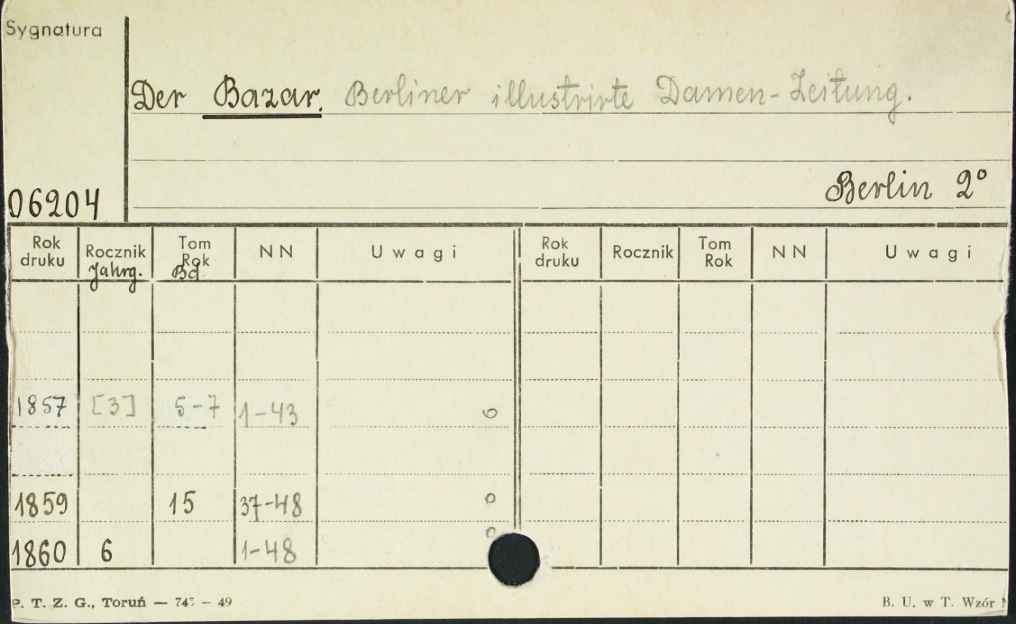 Sygnatura
Der Bazar. Berliner illustrirte Damen-Zeitung.
06204
Berlin 2°
Rok druku Rocznik Jahrg. Tom Rok Bd. NN Uwagi Rok druku Rocznik Tom Rok NN Uwagi
1857 [3] 5-7 1-43
1859 15 37-48
1860 6 1-48
P. T. Z. G., Toruń — 745 — 49
B. U. w T. Wzór